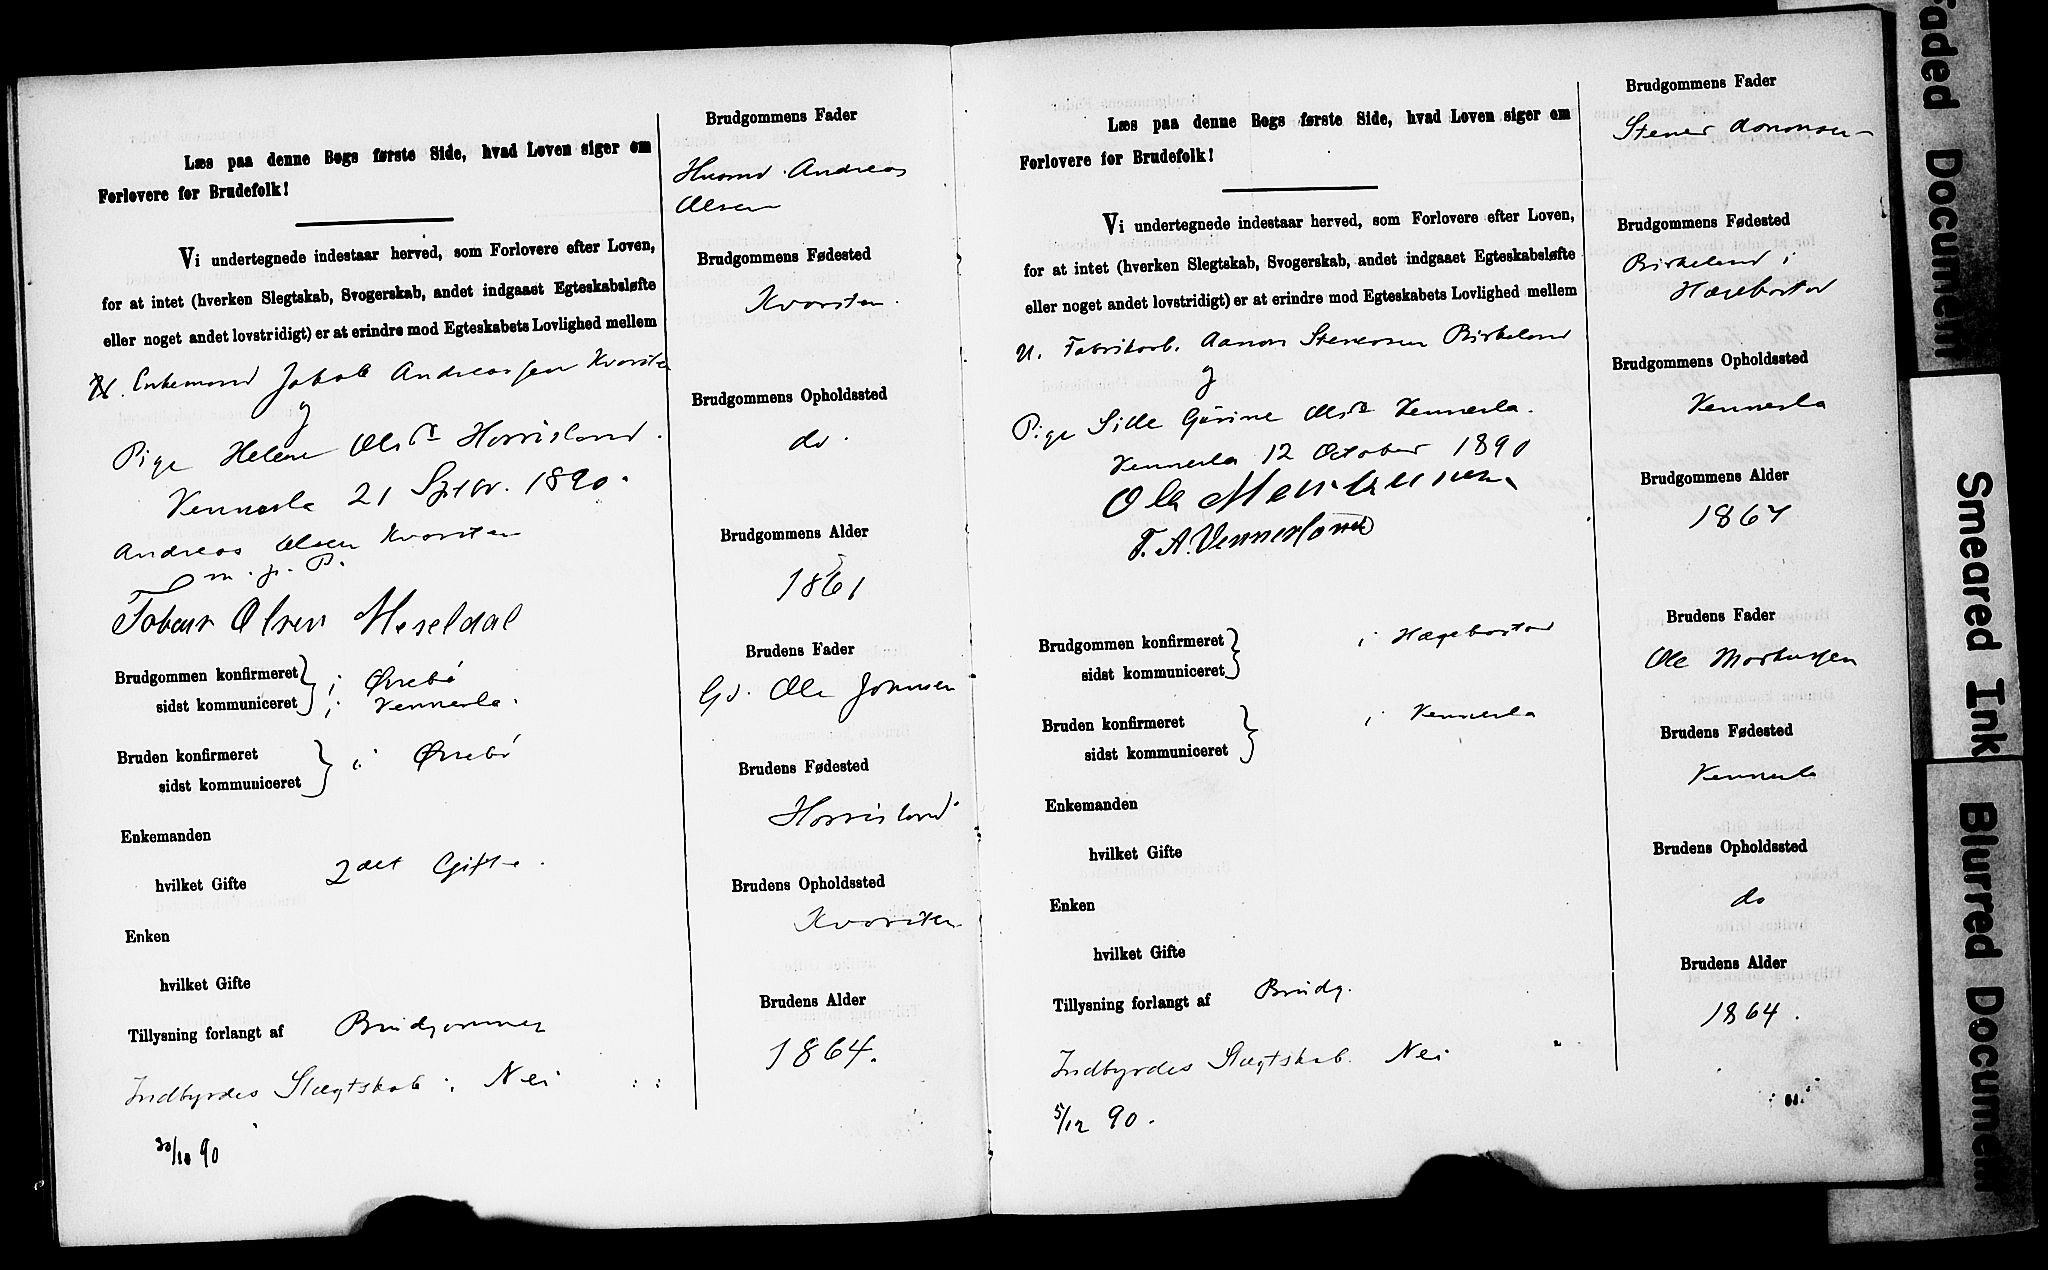 Læs paa denne Bogs første Side, hvad Loven siger om
Forlovere for Brudefolk!
Vi undertegnede indestaar herved, som Forlovere efter Loven,
for at intet (hverken Slegtskab, Svogerskab, andet indgaaet Egteskabsløfte
eller noget andet lovstridigt) er at erindre mod Egteskabets Lovlighed mellem
Enkemand Jakob Andreassen Kvarsten
og
Pige Helene Olsdr Horrisland.
Vennesla 21 Septbr. 1890.
Andreas Olsen Kvarsten
m. p. P.
Olsen Meseldal
Brudgommen konfirmeret i Øvrebø
sidst kommuniceret i Vennesla.
Bruden konfirmeret i Øvrebø
sidst kommuniceret
Enkemanden
hvilket Gifte 2det Gifte.
Enken
hvilket Gifte
Tillysning forlangt af Brudgommen
Indbyrdes Slægtskab: Nei
30/10 90
Brudgommens Fader
Husmd Andreas
Olsen
Brudgommens Fødested
Kvarsten.
Brudgommens Opholdssted
do.
Brudgommens Alder
1861
Brudens Fader
Gd. Ole Johnsen
Brudens Fødested
Horrisland
Brudens Opholdssted
Kvarsten
Brudens Alder
1864.
Læs paa denne Bogs første Side, hvad Loven siger om
Forlovere for Brudefolk!
Vi undertegnede indestaar herved, som Forlovere efter Loven,
for at intet (hverken Slegtskab, Svogerskab, andet indgaaet Egteskabsløfte
eller noget andet lovstridigt) er at erindre mod Egteskabets Lovlighed mellem
U. Fabrikarb. Aanon Stenersen Birkeland
og
Pige Sille Gurine Olsdr Vennesla.
Vennesla 12 October 1890
Ole
T. A. Vennesland
Brudgommen konfirmeret i Hægebostad
sidst kommuniceret
Bruden konfirmeret i Vennesla
sidst kommuniceret
Enkemanden
hvilket Gifte
Enken
hvilket Gifte
Tillysning forlangt af Brudg.
Indbyrdes Slægtskab. Nei
5/12 90.
Brudgommens Fader
Stener Aanonsen
Brudgommens Fødested
Birkeland i
Hægebostad
Brudgommens Opholdssted
Vennesla
Brudgommens Alder
1867
Brudens Fader
Ole Markussen
Brudens Fødested
Vennesla
Brudens Opholdssted
do
Brudens Alder
1864.
Faded Document
Smeared Ink
Blurred Document